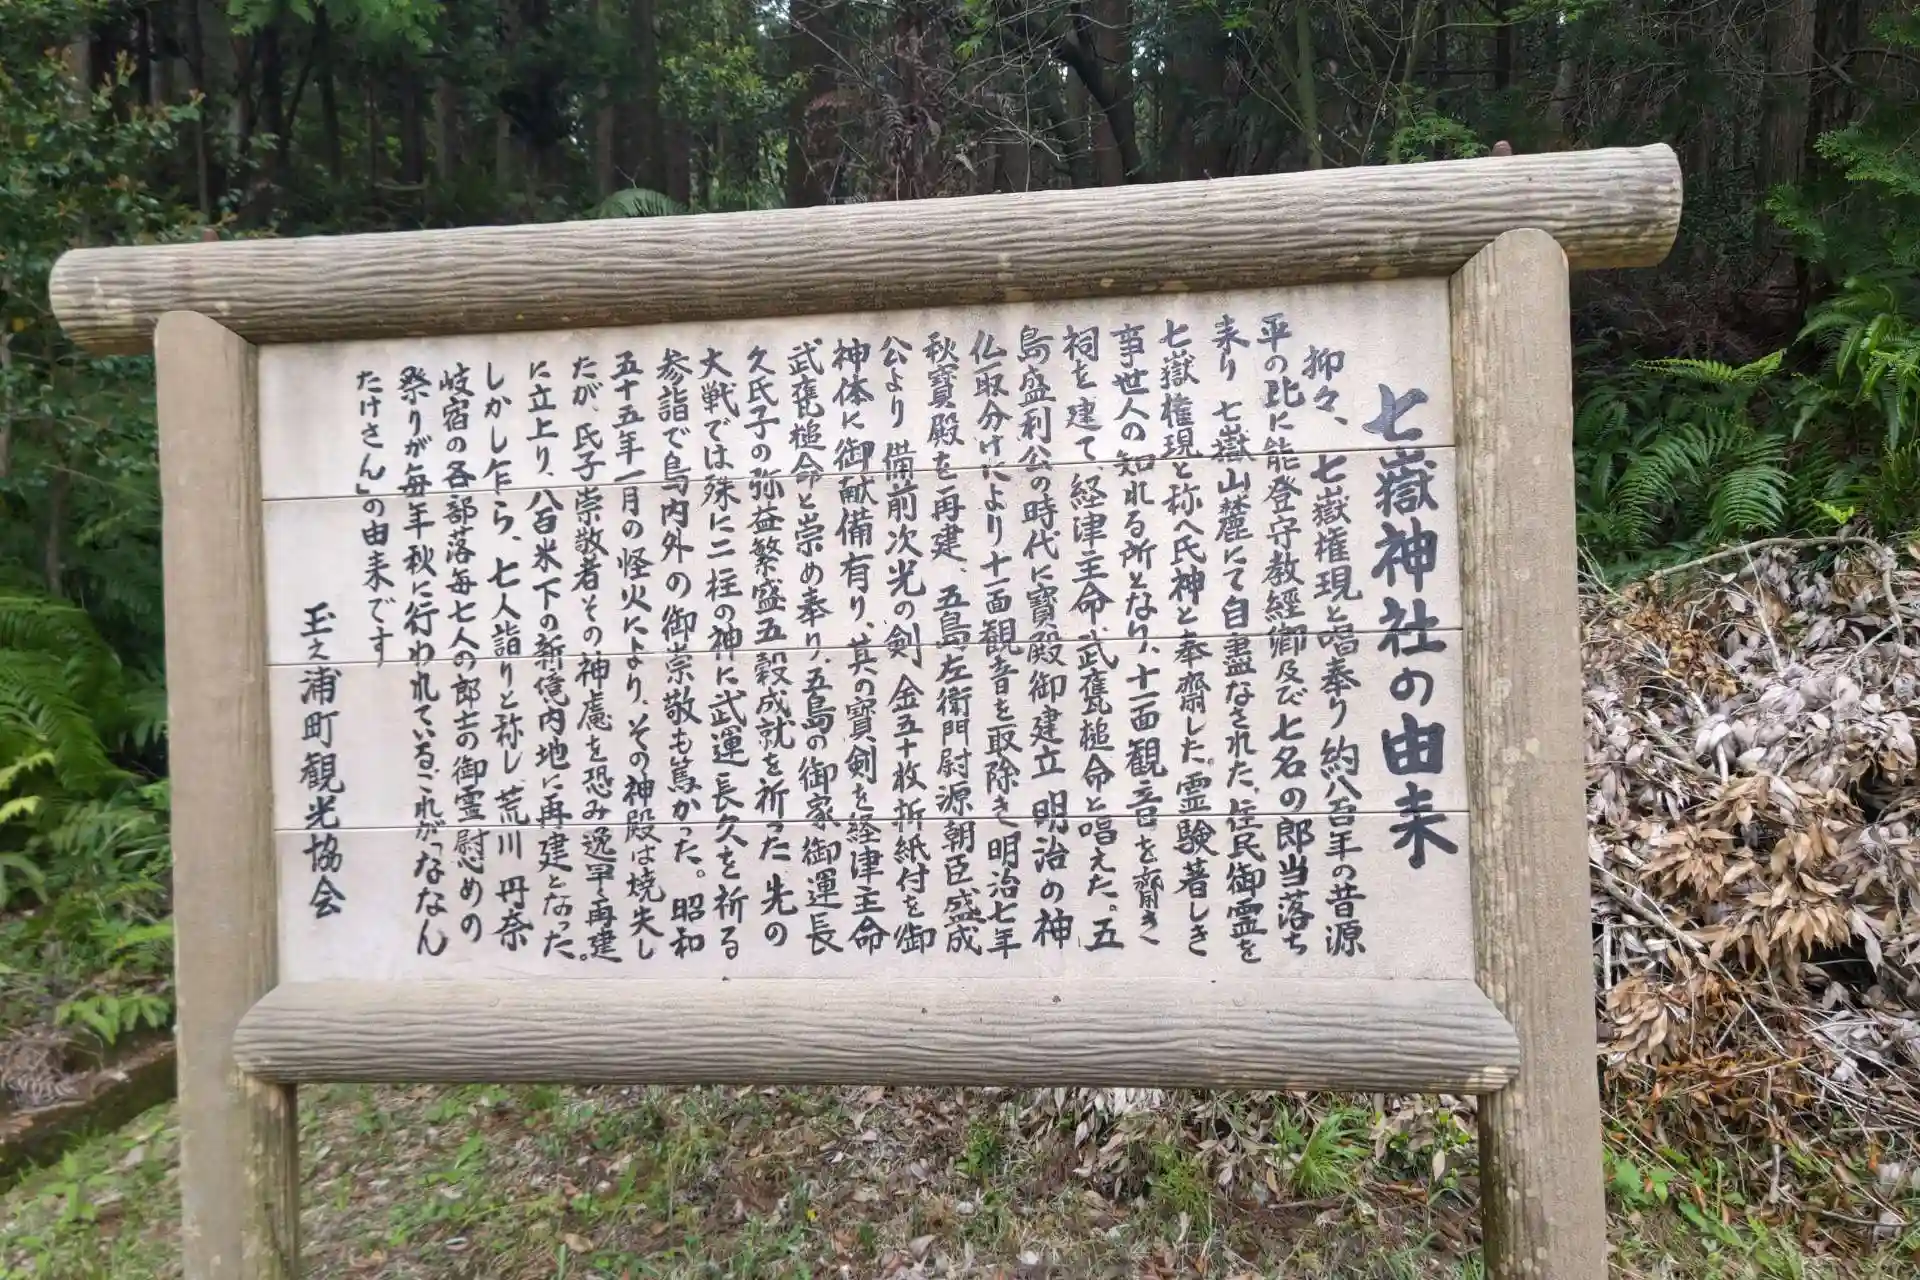 七嶽神社の由来
抑々、七嶽権現と唱奉り約八百年の昔源
平の比に能登守教経卿及び七名の郎当落ち
来り七嶽山麓にて自盡なされた、住民御霊を
七嶽権現と称へ氏神と奉齋した。霊験著しき
事世人の知れる所となり、十一面観音を齋き
祠を建て、経津主命、武甕槌命と唱えた。五
島盛利公の時代に寶殿御建立 明治の神
仏取分けにより十一面観音を取除き明治七年
秋寶殿を再建、五島左衛門尉源朝臣盛成
公より備前次光の剣、金五十枚折紙付を御
神体に御献備有り、其の寶剣を経津主命
武甕槌命と崇め奉り、五島の御家御運長
久氏子の弥益繁盛五穀成就を祈った、先の
大戦では殊に二柱の神に武運長久を祈る
参詣で島内外の御崇敬も篤かった。昭和
五十五年一月の怪火により、その神殿は焼失し
たが、氏子崇敬者その神慮を恐み逸早再建
に立上り、八百米下の新境内地に再建となった。
しかし乍ら、七人詣りと称し、荒川、丹奈
岐宿の各部落毎七人の郎士の御霊慰めの
祭りが毎年秋に行われているこれが「ななん
たけさん」の由来です
玉之浦町観光協会